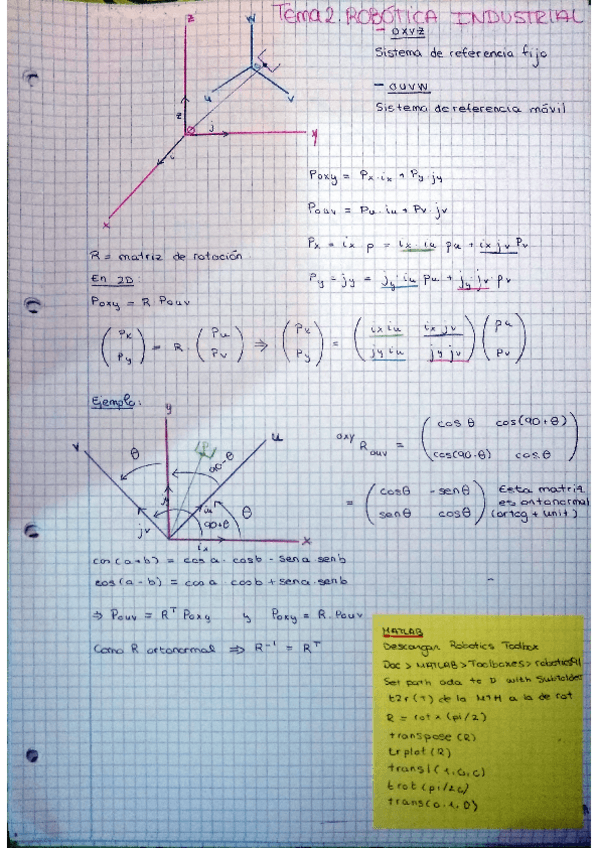 Tema 2. ROBÓTICA INDUSTRIAL
- OXYZ
Sistema de referencia fijo
- OUVW
Sistema de referencia móvil
z
w
u
v
z
j
i
y
x
Poxy = Px·ix + Py·jy
Pouv = Pu·iu + Pv·jv
Px = ix p = ix·iu pu + ix jv Pv
Py = jy = jy iu pu + jy·jv·pv
R = matriz de rotación
En 2D:
Poxy = R Pouv
(Px Py) = R·(Pu Pv) ⇒ (Px Py) = (ix iu ix jv jy iu jy jv)(pu pv)
Ejemplo:
y
v
u
θ
(P)
90-θ
jy
iu
jv
90+θ
θ
ix
x
oxy R ouv = (cos θ cos(90+θ) cos(90-θ) cos θ)
= (cosθ -senθ senθ cosθ) Esta matriz
es ortonormal
(ortog + unit)
cos(a+b) = cos a · cos b - sen a sen b
cos(a-b) = cos a cos b + sen a · sen b
⇒ Pouv = Rᵀ Poxy y Poxy = R·Pouv
Como R ortonormal ⇒ R⁻¹ = Rᵀ
MATLAB
Descargan Robotics Toolbox
Doc > MATLAB > Toolboxes > robotic
Set path add to D with Subfolder
t2r(T) de la MTH a la de rot
R = rotx(pi/2)
transpose(R)
trplot(R)
transl(1,0,0)